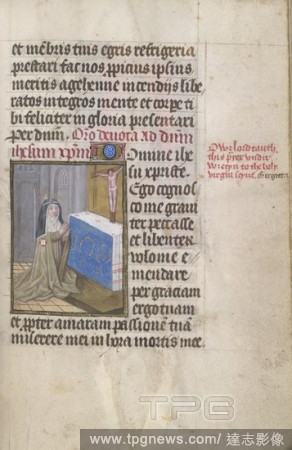 et mēbris tuis egris refrigeria
prestari fac nos ꝓpicius ipsius
meritis a gehenne incendijs libe
ratos integros mente et corpe ti
bi feliciter in gloria presentari
per dnm. Oro deuota ad dnm
ihesum xpm
Omine ihe
su xpriste.
Ego cognos
co me graui
ter peccasse
et libenter
volo me e
mendare
per graciam
ergo tuam
et ꝓpter amaram passionē tuā
miserere mei in hora mortis mee
Owr lord tauth
this prer vndir
wretyn to the holy
virgin Birgitta
TPG
www.tpgnews.com / 達志影像